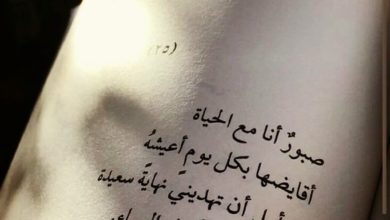 (٢٥)
صبورٌ أنا مع الحياة
أقايضها بكل يوم أعيشهُ
أن تهديني نهايةً سعيدة